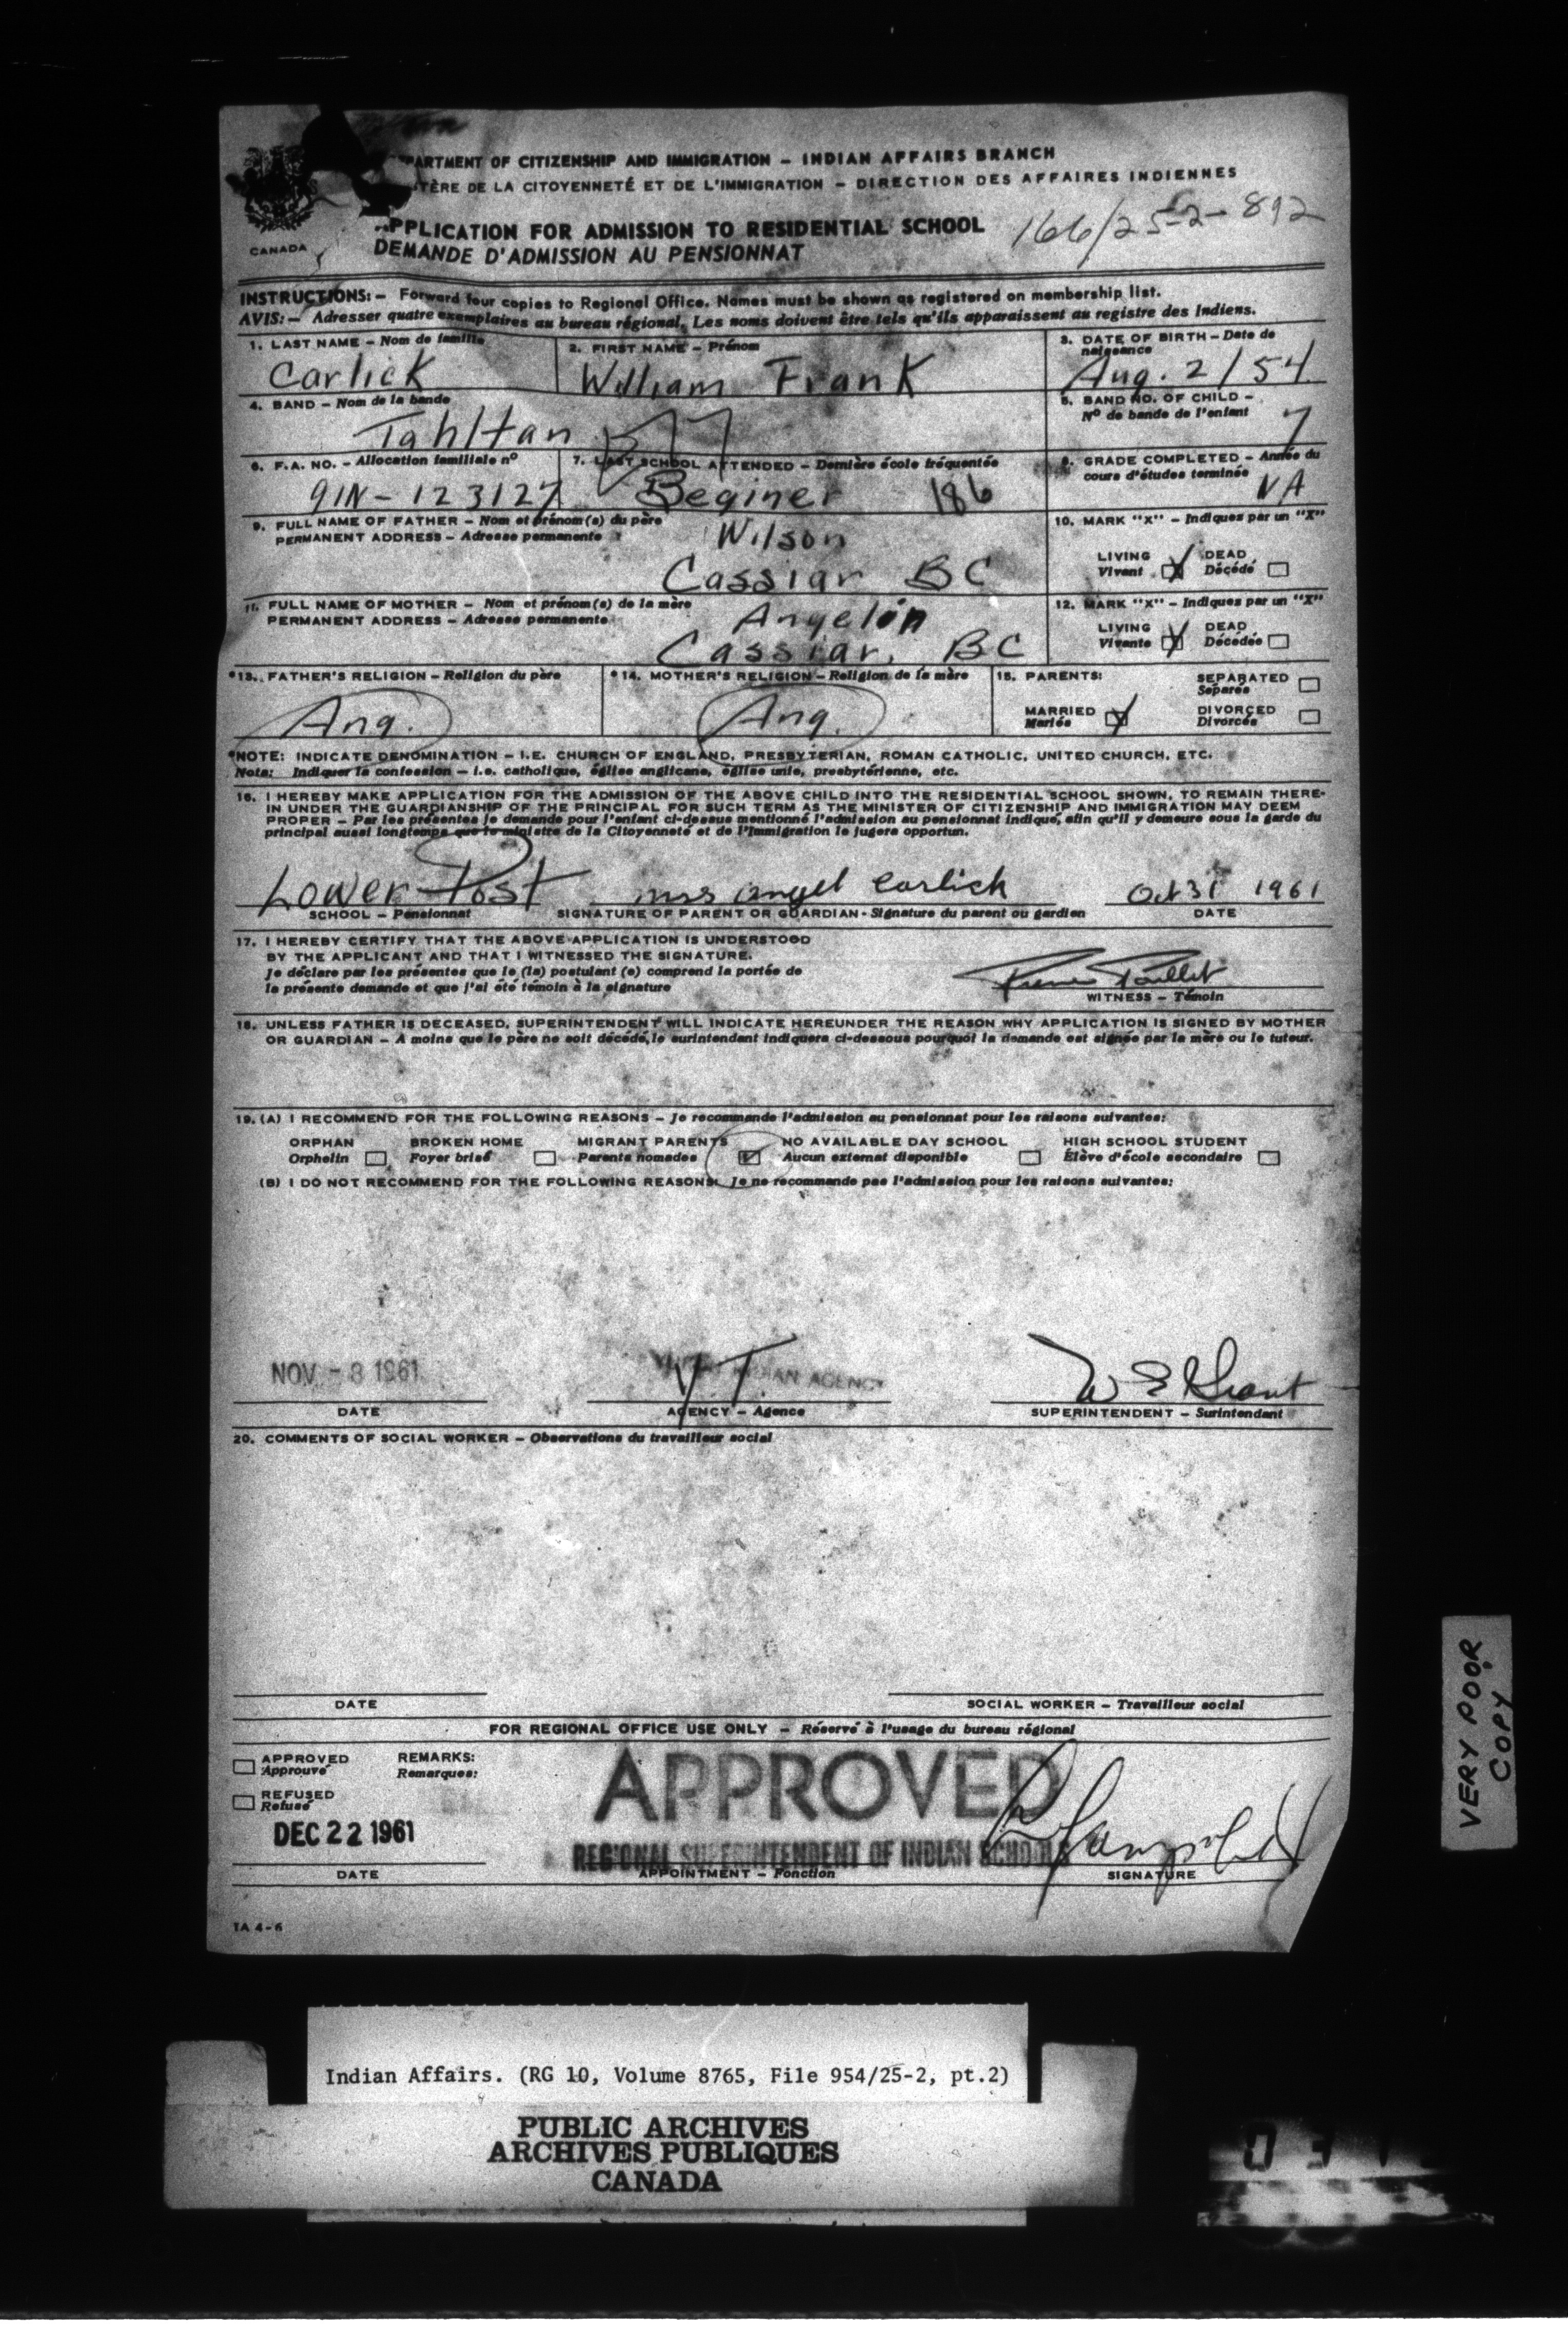 PARTMENT OF CITIZENSHIP AND IMMIGRATION – INDIAN AFFAIRS BRANCH
TÈRE DE LA CITOYENNETÉ ET DE L'IMMIGRATION – DIRECTION DES AFFAIRES INDIENNES
PPLICATION FOR ADMISSION TO RESIDENTIAL SCHOOL 166/25-2-892
DEMANDE D'ADMISSION AU PENSIONNAT
CANADA
INSTRUCTIONS: – Forward four copies to Regional Office. Names must be shown as registered on membership list.
AVIS: – Adresser quatre exemplaires au bureau régional. Les noms doivent être tels qu'ils apparaissent au registre des Indiens.
1. LAST NAME – Nom de famille 2. FIRST NAME – Prénom 3. DATE OF BIRTH – Date de naissance
Carlick William Frank Aug. 2/54
4. BAND – Nom de la bande 5. BAND NO. OF CHILD –
Nº de bande de l'enfant
Tahltan 7
6. F.A. NO. – Allocation familiale nº 7. LAST SCHOOL ATTENDED – Dernière école fréquentée 8. GRADE COMPLETED – Année du
cours d'études terminée
91N-123127 Beginer 186 NA
9. FULL NAME OF FATHER – Nom et prénom(s) du père 10. MARK "X" – Indiquez par un "X"
PERMANENT ADDRESS – Adresse permanente
Wilson
Cassiar BC
LIVING DEAD
Vivant X Décédé
11. FULL NAME OF MOTHER – Nom et prénom(s) de la mère 12. MARK "X" – Indiquez par un "X"
PERMANENT ADDRESS – Adresse permanente
Angelin
Cassiar, BC
LIVING DEAD
Vivante X Décédée
*13. FATHER'S RELIGION – Religion du père *14. MOTHER'S RELIGION – Religion de la mère 15. PARENTS: SEPARATED
Séparés
Ang. Ang. MARRIED DIVORCED
Mariés X Divorcés
*NOTE: INDICATE DENOMINATION – I.E. CHURCH OF ENGLAND, PRESBYTERIAN, ROMAN CATHOLIC, UNITED CHURCH, ETC.
Nota: Indiquer la confession – i.e. catholique, église anglicane, église unie, presbytérienne, etc.
16. I HEREBY MAKE APPLICATION FOR THE ADMISSION OF THE ABOVE CHILD INTO THE RESIDENTIAL SCHOOL SHOWN, TO REMAIN THERE-
IN UNDER THE GUARDIANSHIP OF THE PRINCIPAL FOR SUCH TERM AS THE MINISTER OF CITIZENSHIP AND IMMIGRATION MAY DEEM
PROPER – Par les présentes je demande pour l'enfant ci-dessus mentionné l'admission au pensionnat indiqué, afin qu'il y demeure sous la garde du
principal aussi longtemps que le ministre de la Citoyenneté et de l'Immigration le jugera opportun.
Lower Post mrs angel Carlick Oct 31 1961
SCHOOL – Pensionnat SIGNATURE OF PARENT OR GUARDIAN - Signature du parent ou gardien DATE
17. I HEREBY CERTIFY THAT THE ABOVE APPLICATION IS UNDERSTOOD
BY THE APPLICANT AND THAT I WITNESSED THE SIGNATURE.
Je déclare par les présentes que le (la) postulant (e) comprend la portée de
la présente demande et que j'ai été témoin à la signature
WITNESS – Témoin
18. UNLESS FATHER IS DECEASED, SUPERINTENDENT WILL INDICATE HEREUNDER THE REASON WHY APPLICATION IS SIGNED BY MOTHER
OR GUARDIAN – A moins que le père ne soit décédé, le surintendant indiquera ci-dessous pourquoi la demande est signée par la mère ou le tuteur.
19. (A) I RECOMMEND FOR THE FOLLOWING REASONS – Je recommande l'admission au pensionnat pour les raisons suivantes:
ORPHAN BROKEN HOME MIGRANT PARENTS NO AVAILABLE DAY SCHOOL HIGH SCHOOL STUDENT
Orphelin Foyer brisé Parents nomades Aucun externat disponible Élève d'école secondaire
(B) I DO NOT RECOMMEND FOR THE FOLLOWING REASONS: Je ne recommande pas l'admission pour les raisons suivantes:
NOV - 8 1961 Y T. INDIAN AGENCY W E Grant
DATE AGENCY – Agence SUPERINTENDENT – Surintendant
20. COMMENTS OF SOCIAL WORKER – Observations du travailleur social
DATE SOCIAL WORKER – Travailleur social
FOR REGIONAL OFFICE USE ONLY – Réservé à l'usage du bureau régional
APPROVED REMARKS:
Approuvé Remarques:
APPROVED
REFUSED
Refusé
DEC 22 1961
REGIONAL SUPERINTENDENT OF INDIAN SCHOOLS
DATE APPOINTMENT – Fonction SIGNATURE
IA 4-6
VERY POOR
COPY
Indian Affairs. (RG 10, Volume 8765, File 954/25-2, pt.2)
PUBLIC ARCHIVES
ARCHIVES PUBLIQUES
CANADA